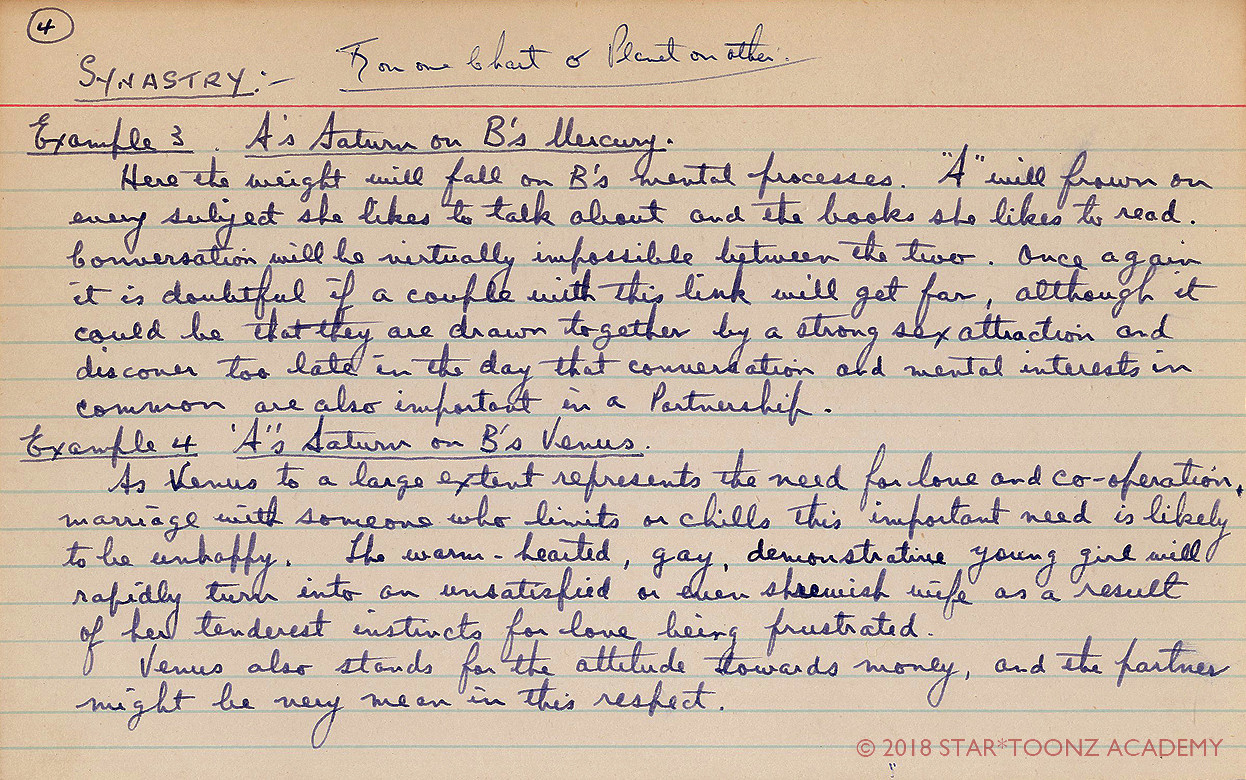 4
SYNASTRY:- ♄ on one Chart ☌ Planet on other.
Example 3. A's Saturn on B's Mercury.
Here the weight will fall on B's mental processes. "A" will frown on
every subject she likes to talk about and the books she likes to read.
Conversation will be virtually impossible between the two. Once again
it is doubtful if a couple with this link will get far, although it
could be that they are drawn together by a strong sex attraction and
discover too late in the day that conversation and mental interests in
common are also important in a Partnership.
Example 4 'A''s Saturn on B's Venus.
As Venus to a large extent represents the need for love and co-operation,
marriage with someone who limits or chills this important need is likely
to be unhappy. The warm-hearted, gay, demonstrative young girl will
rapidly turn into an unsatisfied or even shrewish wife as a result
of her tenderest instincts for love being frustrated.
Venus also stands for the attitude towards money, and the partner
might be very mean in this respect.
© 2018 STAR*TOONZ ACADEMY